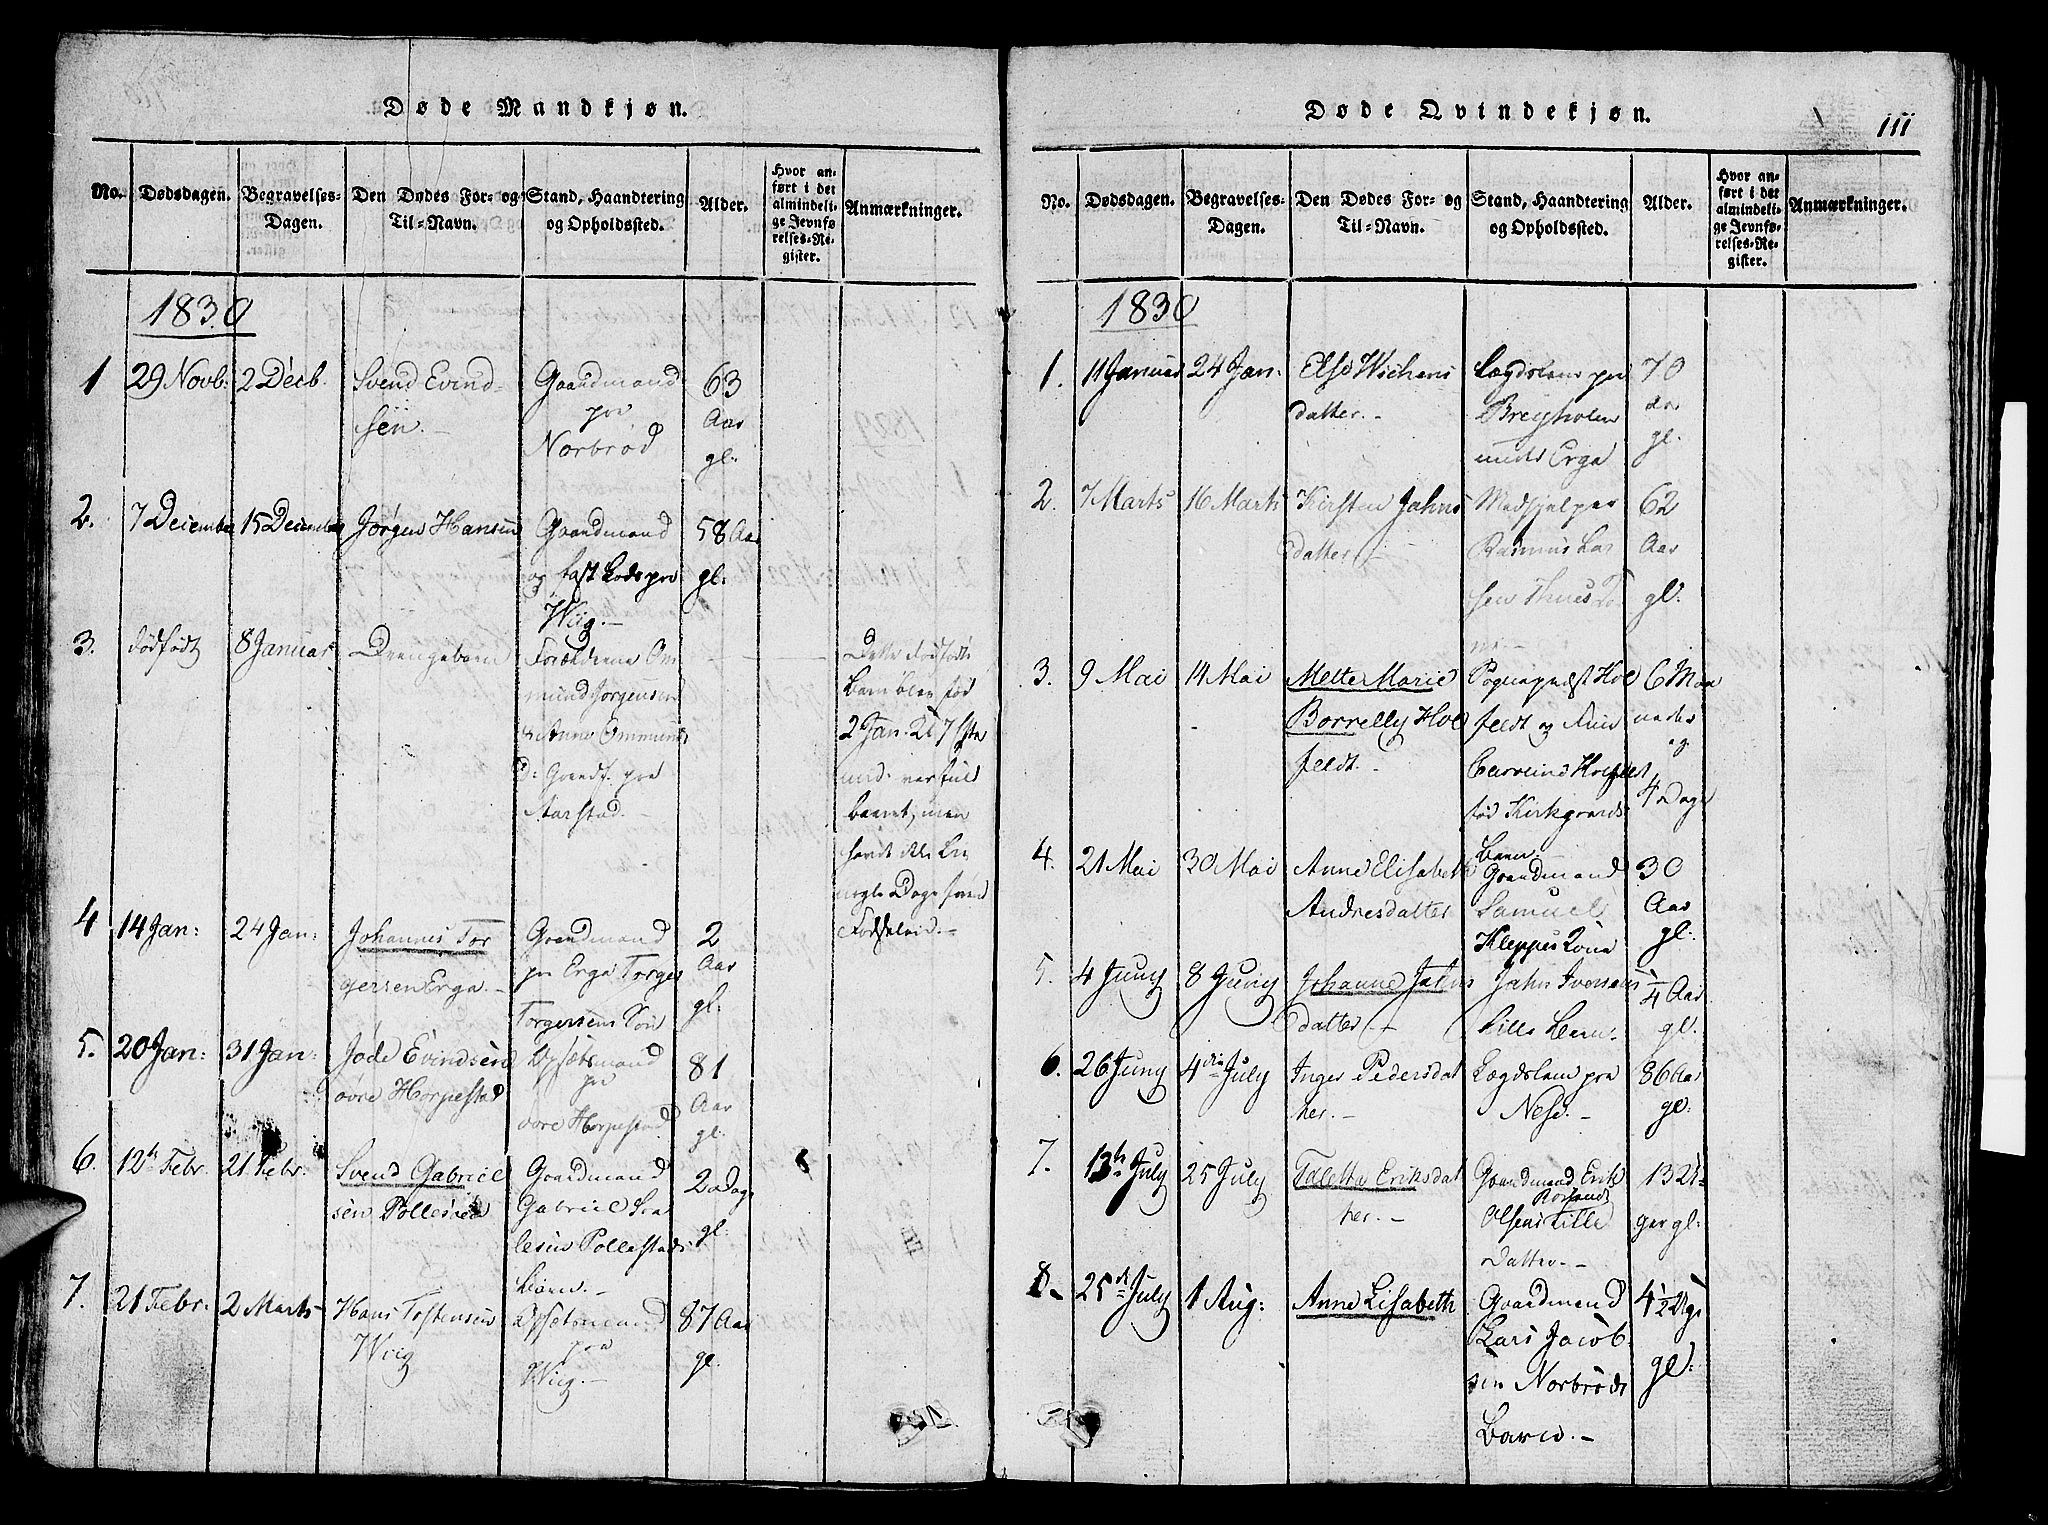 Døde Mandkjøn.
No.
Dødsdagen.
Begravelses-
Dagen.
Den Dødes For- og
Til-Navn.
Stand, Haandtering
og Opholdssted.
Alder.
Hvor an-
ført i det
almindeli-
ge Jevnfø-
relses-Re-
gister.
Anmærkninger.
1830
1
29 Novb:
2 Decb.
Svend Evind-
sen.-
Gaardmand
paa
Norbrød
63
Aar
gl:
2.
7 December
15 December
Jørgen Hansen
Gaardmand
og fast Lods paa
Wiig.-
58 Aar
gl:
3.
dødfødt
8 Januar
Drengebarn
Forældrene Om
mund Jørgensen
& Anne Ommunds
d: Gaardf. paa
Aarstad.-
Dette dødfødte
Barn blev fød
2 Jan.
baaret, men
havde ikke Liv
nogle Dage før
Fødselen.-
4
14 Jan:
24 Jan:
Johannes Tor
gersen Erga.-
Gaardmand
paa Erga Torger
Torgersens Søn
2
Aar
gl:
5.
20 Jan:
31 Jan:
Jøde Evindsen
øvre Horpestad
Opsætsmand
paa
øvre Horpestad
81
Aar
gl.
6.
12te Febr.
21 Febr.
Svend Gabriel
sen Pollestad
Gaardmand
Gabriel Sva
lesen Pollestads
Barn.-
2 Dage
gl.
7.
21 Febr:
2 Marts
Hans Tostensen
Wiig
Opsætsmand
paa
Wiig.-
87 Aar
gl.
Døde Qvindekjøn.
111
No.
Dødsdagen.
Begravelses-
Dagen.
Den Dødes For- og
Til-Navn.
Stand, Haandtering
og Opholdssted.
Alder.
Hvor an-
ført i det
almindeli-
ge Jevnfø-
relses-Re-
gister.
Anmærkninger.
1830
1.
11 Januar
24 Jan:
Else Wichens
datter.-
Lægdslem paa
Breyholen
under Erga
70
Aar
gl.
2.
7 Marts
16 Marts
Kirsten Jahns
datter.-
Medhjelper
Rasmus Lar
sen Kone
62
Aar
gl:
3.
9 Mai
14 Mai
Mette Marie
Borrelly Hol
feldt.-
Sogneprest Hol
feldt og Frue
4 Dage
6 Maa
neder
og
4.
21 Mai
30 Mai
Anne Elisabeth
Andresdatter
Barn
Gaardmand
Samuel
Kleppes Kone
30
Aar
gl:
5.
4 Juny
8 Juny
Johanne Jahns
datter.-
Jahn Iversens
Lille Barn.
1/4 Aar
gl:
6.
26 Juny
4de July
Inger Pedersdat
ter.-
Lægdslem paa
Nese.-
86 Aar
gl:
7.
13te July
25 July
Taletta Eriksdat
ter.-
Gaardmand Erik
Olsens Lille
Datter.-
13 U-
ger gl:
8.-
25de July
1 Aug:
Anne Lisabeth
Gaardmand
Lars Jacob-
sen Norbrøds
Barn.-
4 1/2 Uge
gl: